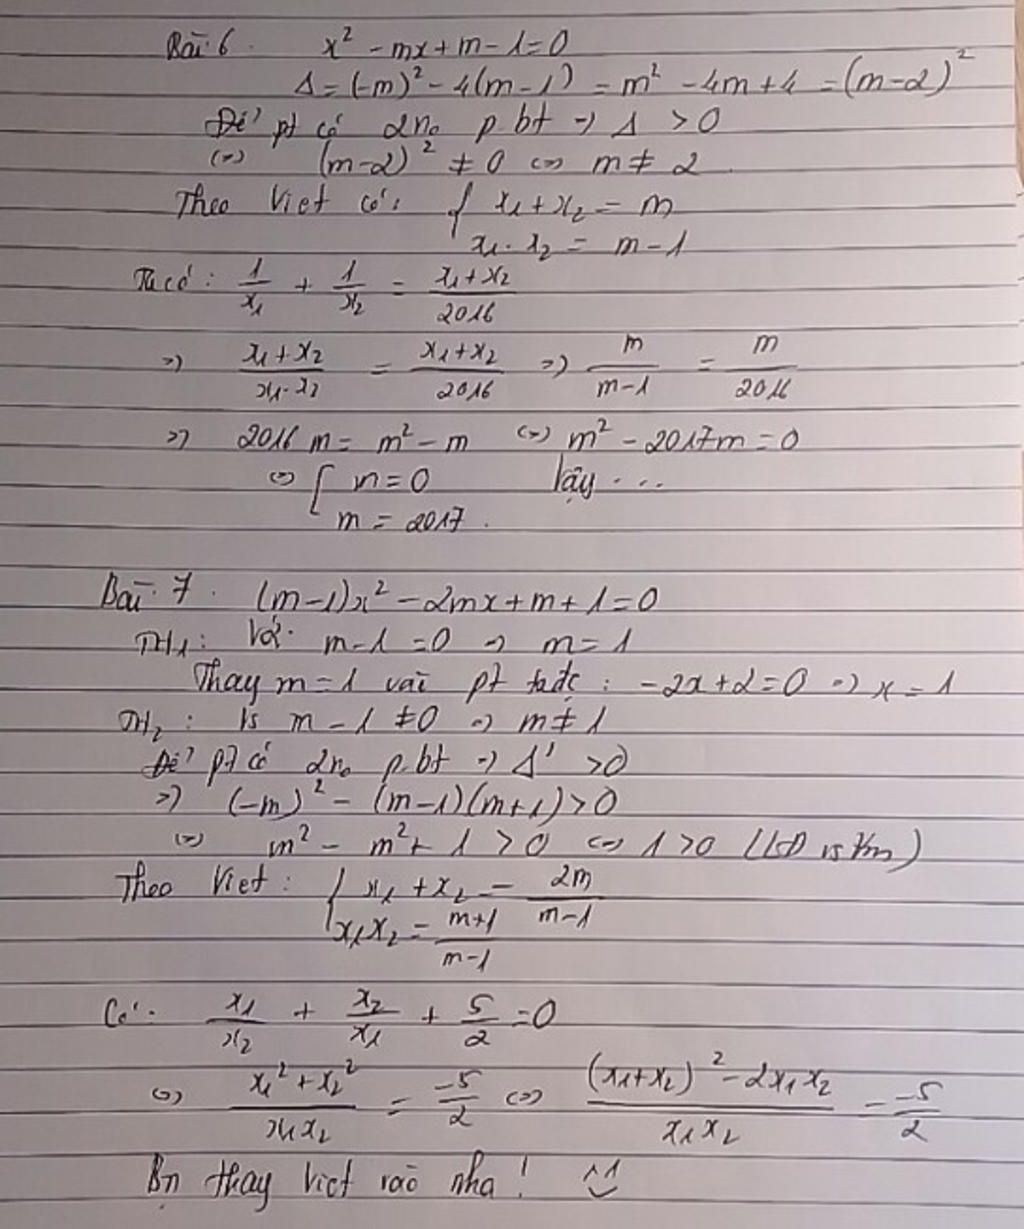 Bài 6. x² - mx + m - 1 = 0
Δ = (-m)² - 4(m - 1) = m² - 4m + 4 = (m - 2)²
Để pt có 2 no p. bt => Δ > 0
<=> (m - 2)² ≠ 0 <=> m ≠ 2
Theo Viet có: { x₁ + x₂ = m
x₁ . x₂ = m - 1
Ta có: 1/x₁ + 1/x₂ = (x₁ + x₂)/2016
=> (x₁ + x₂)/(x₁ . x₂) = (x₁ + x₂)/2016 => m/(m - 1) = m/2016
=> 2016 m = m² - m <=> m² - 2017m = 0
<=> [ m = 0 Vậy ...
m = 2017.
Bài 7. (m - 1)x² - 2mx + m + 1 = 0
TH₁: Với m - 1 = 0 => m = 1
Thay m = 1 vào pt ta đc: -2x + 2 = 0 => x = 1
TH₂: Vs m - 1 ≠ 0 => m ≠ 1
Để pt có 2 no p. bt => Δ' > 0
=> (-m)² - (m - 1)(m + 1) > 0
<=> m² - m² + 1 > 0 <=> 1 > 0 (LĐ vs ∀m)
Theo Viet: { x₁ + x₂ = 2m/(m - 1)
x₁x₂ = (m + 1)/(m - 1)
Có: x₁/x₂ + x₂/x₁ + 5/2 = 0
<=> (x₁² + x₂²)/(x₁x₂) = -5/2 <=> ((x₁ + x₂)² - 2x₁x₂)/(x₁x₂) = -5/2
Bn thay Viet vào nha! ^^